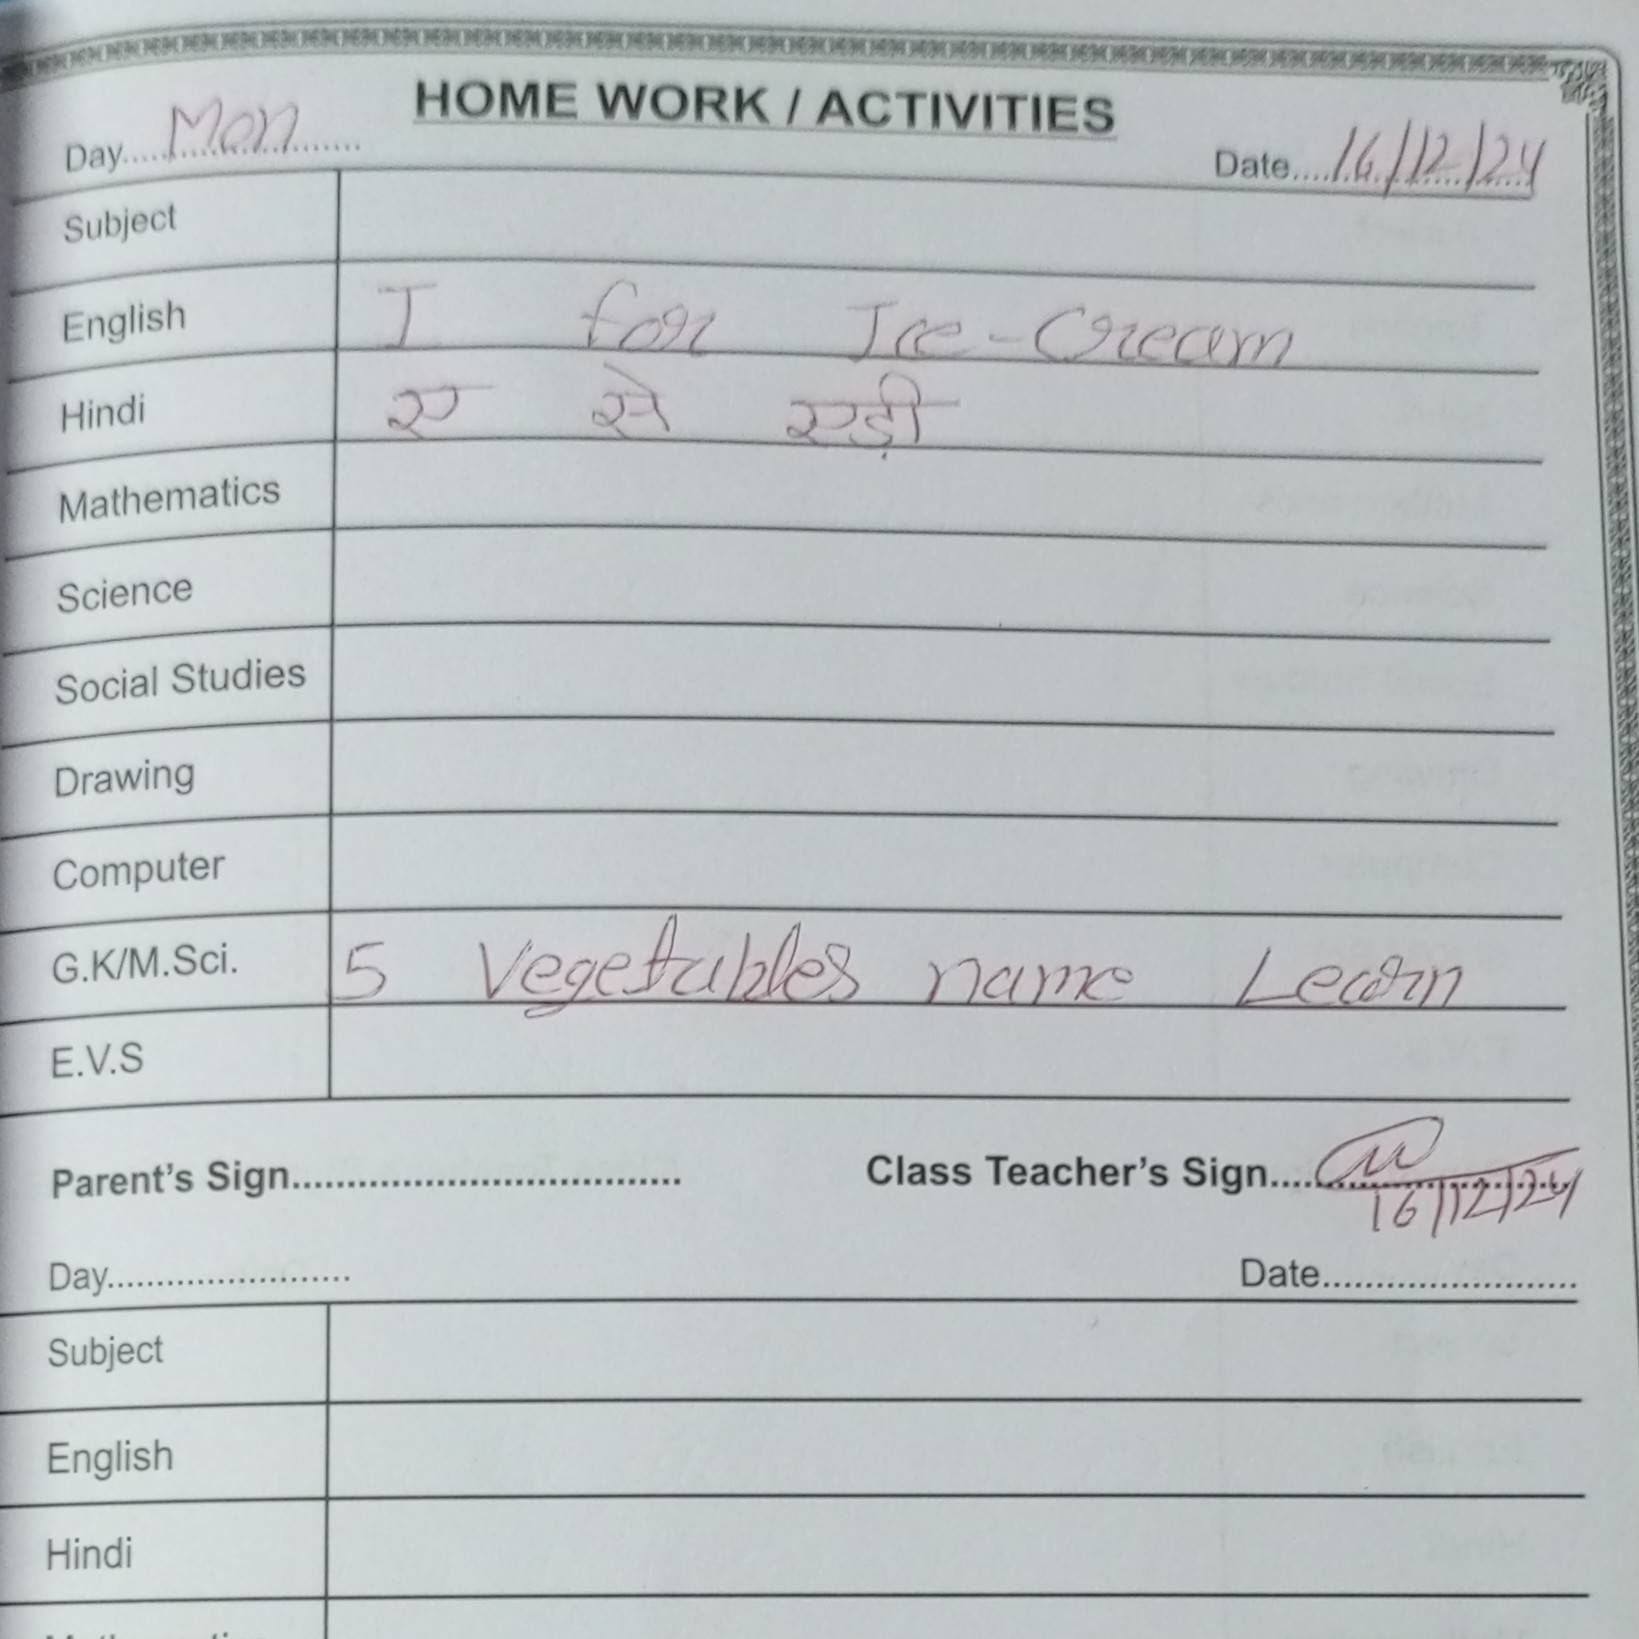 HOME WORK / ACTIVITIES
Day.....Mon.....
Date....16/12/24
Subject
English I for Ice-Cream
Hindi ए से एड़ी
Mathematics
Science
Social Studies
Drawing
Computer
G.K/M.Sci. 5 Vegetables name Learn
E.V.S
Parent's Sign....................................
Class Teacher's Sign....
16/12/24
Day.........................
Date.........................
Subject
English
Hindi